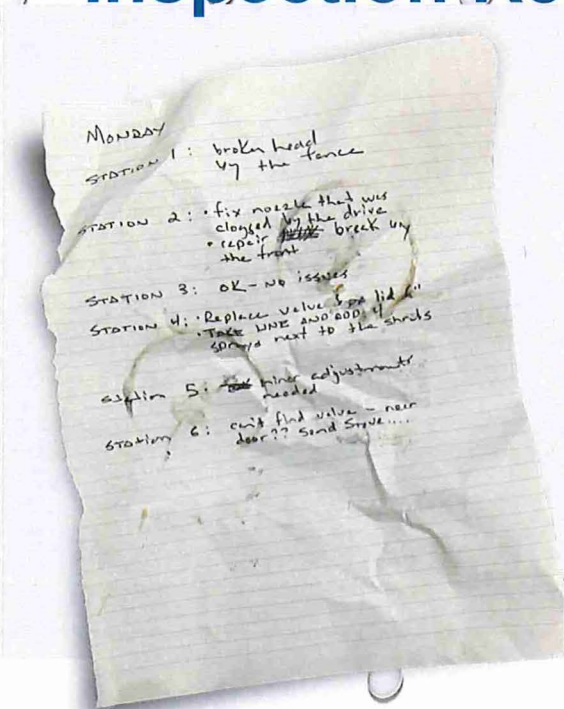 Inspection
MONDAY
STATION 1: broken head
by the fence
STATION 2: • fix nozzle that was
clogged by the drive
• repair break by
the front
STATION 3: OK - NO issues
STATION 4: • Replace valve lid 6"
• TAKE LINE AND ADD 4
sprays next to the shrubs
station 5: minor adjustments
needed
STATION 6: can't find valve - near
door?? Send Steve....